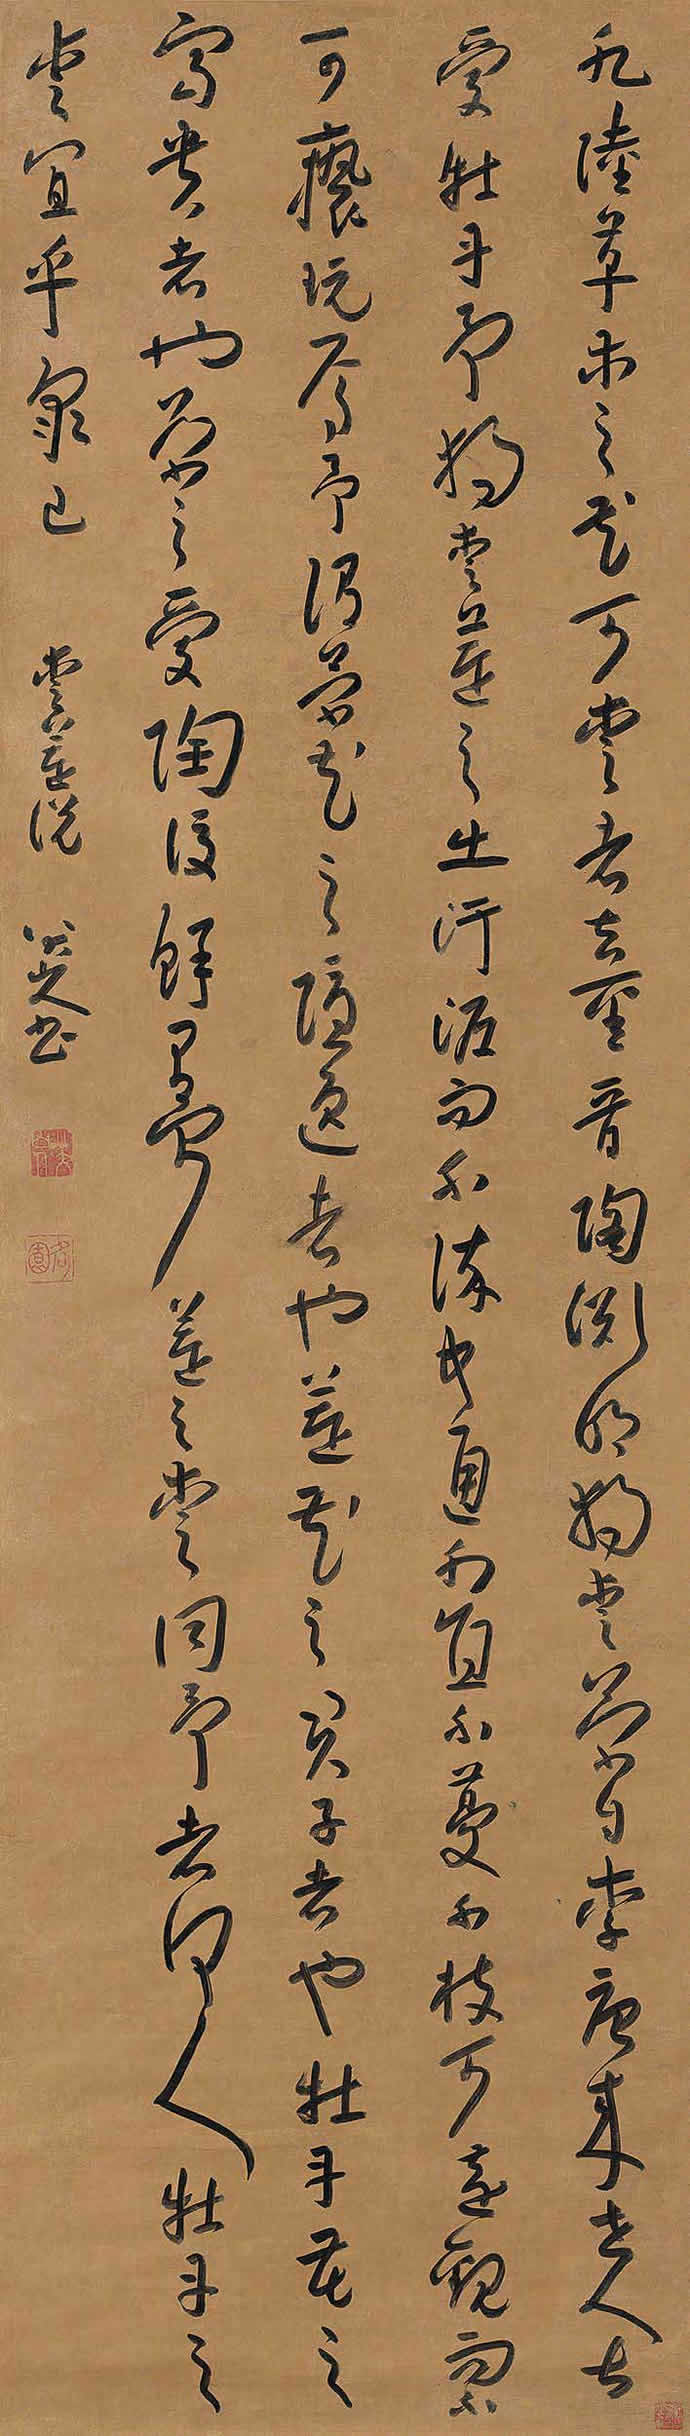 凡陸草木之花可愛者甚蕃晉陶淵明獨愛菊自李唐來世人甚
愛牡丹予獨愛蓮之出汙泥而不染中通外直不蔓不枝可遠觀而不
可褻玩焉予謂菊花之隱逸者也蓮花之君子者也牡丹花之
富貴者也菊之愛陶後鮮聞蓮之愛同予者何人牡丹之
愛宜乎眾已 愛蓮說 八大山人書
八大山人
何園